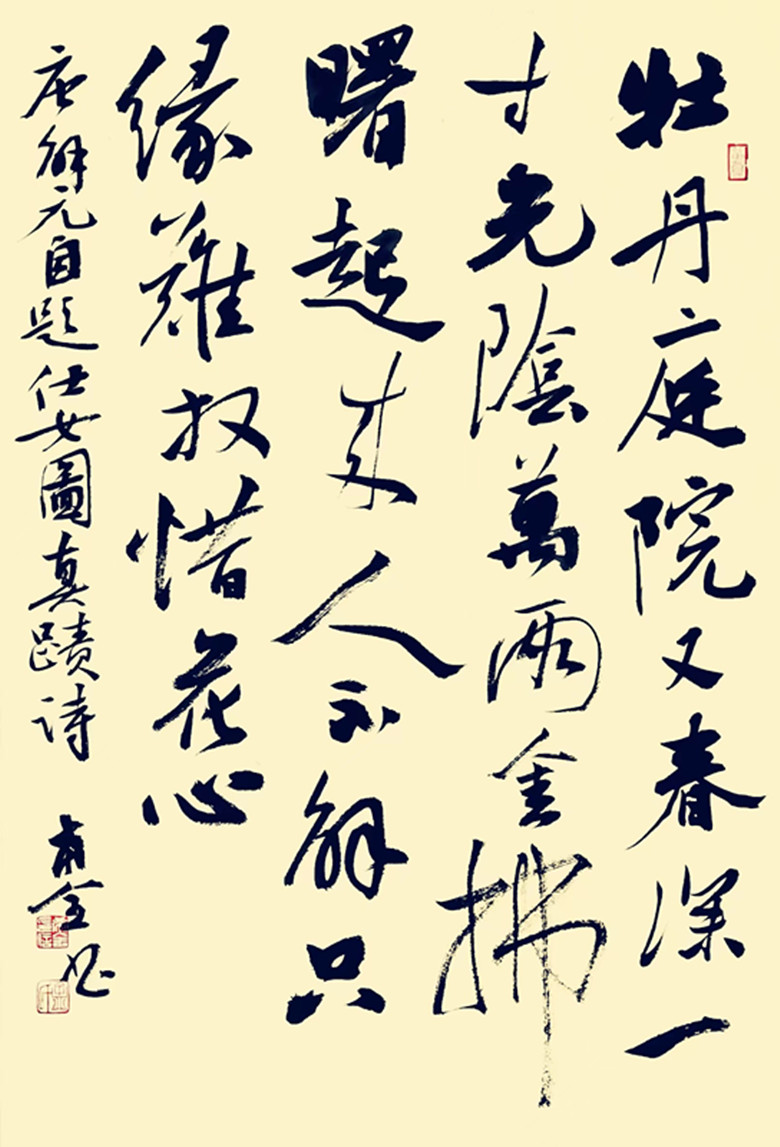 牡丹庭院又春深一
寸光陰萬兩金拂
曙起來人不解只
緣難放惜花心
唐解元自題仕女圖真蹟诗